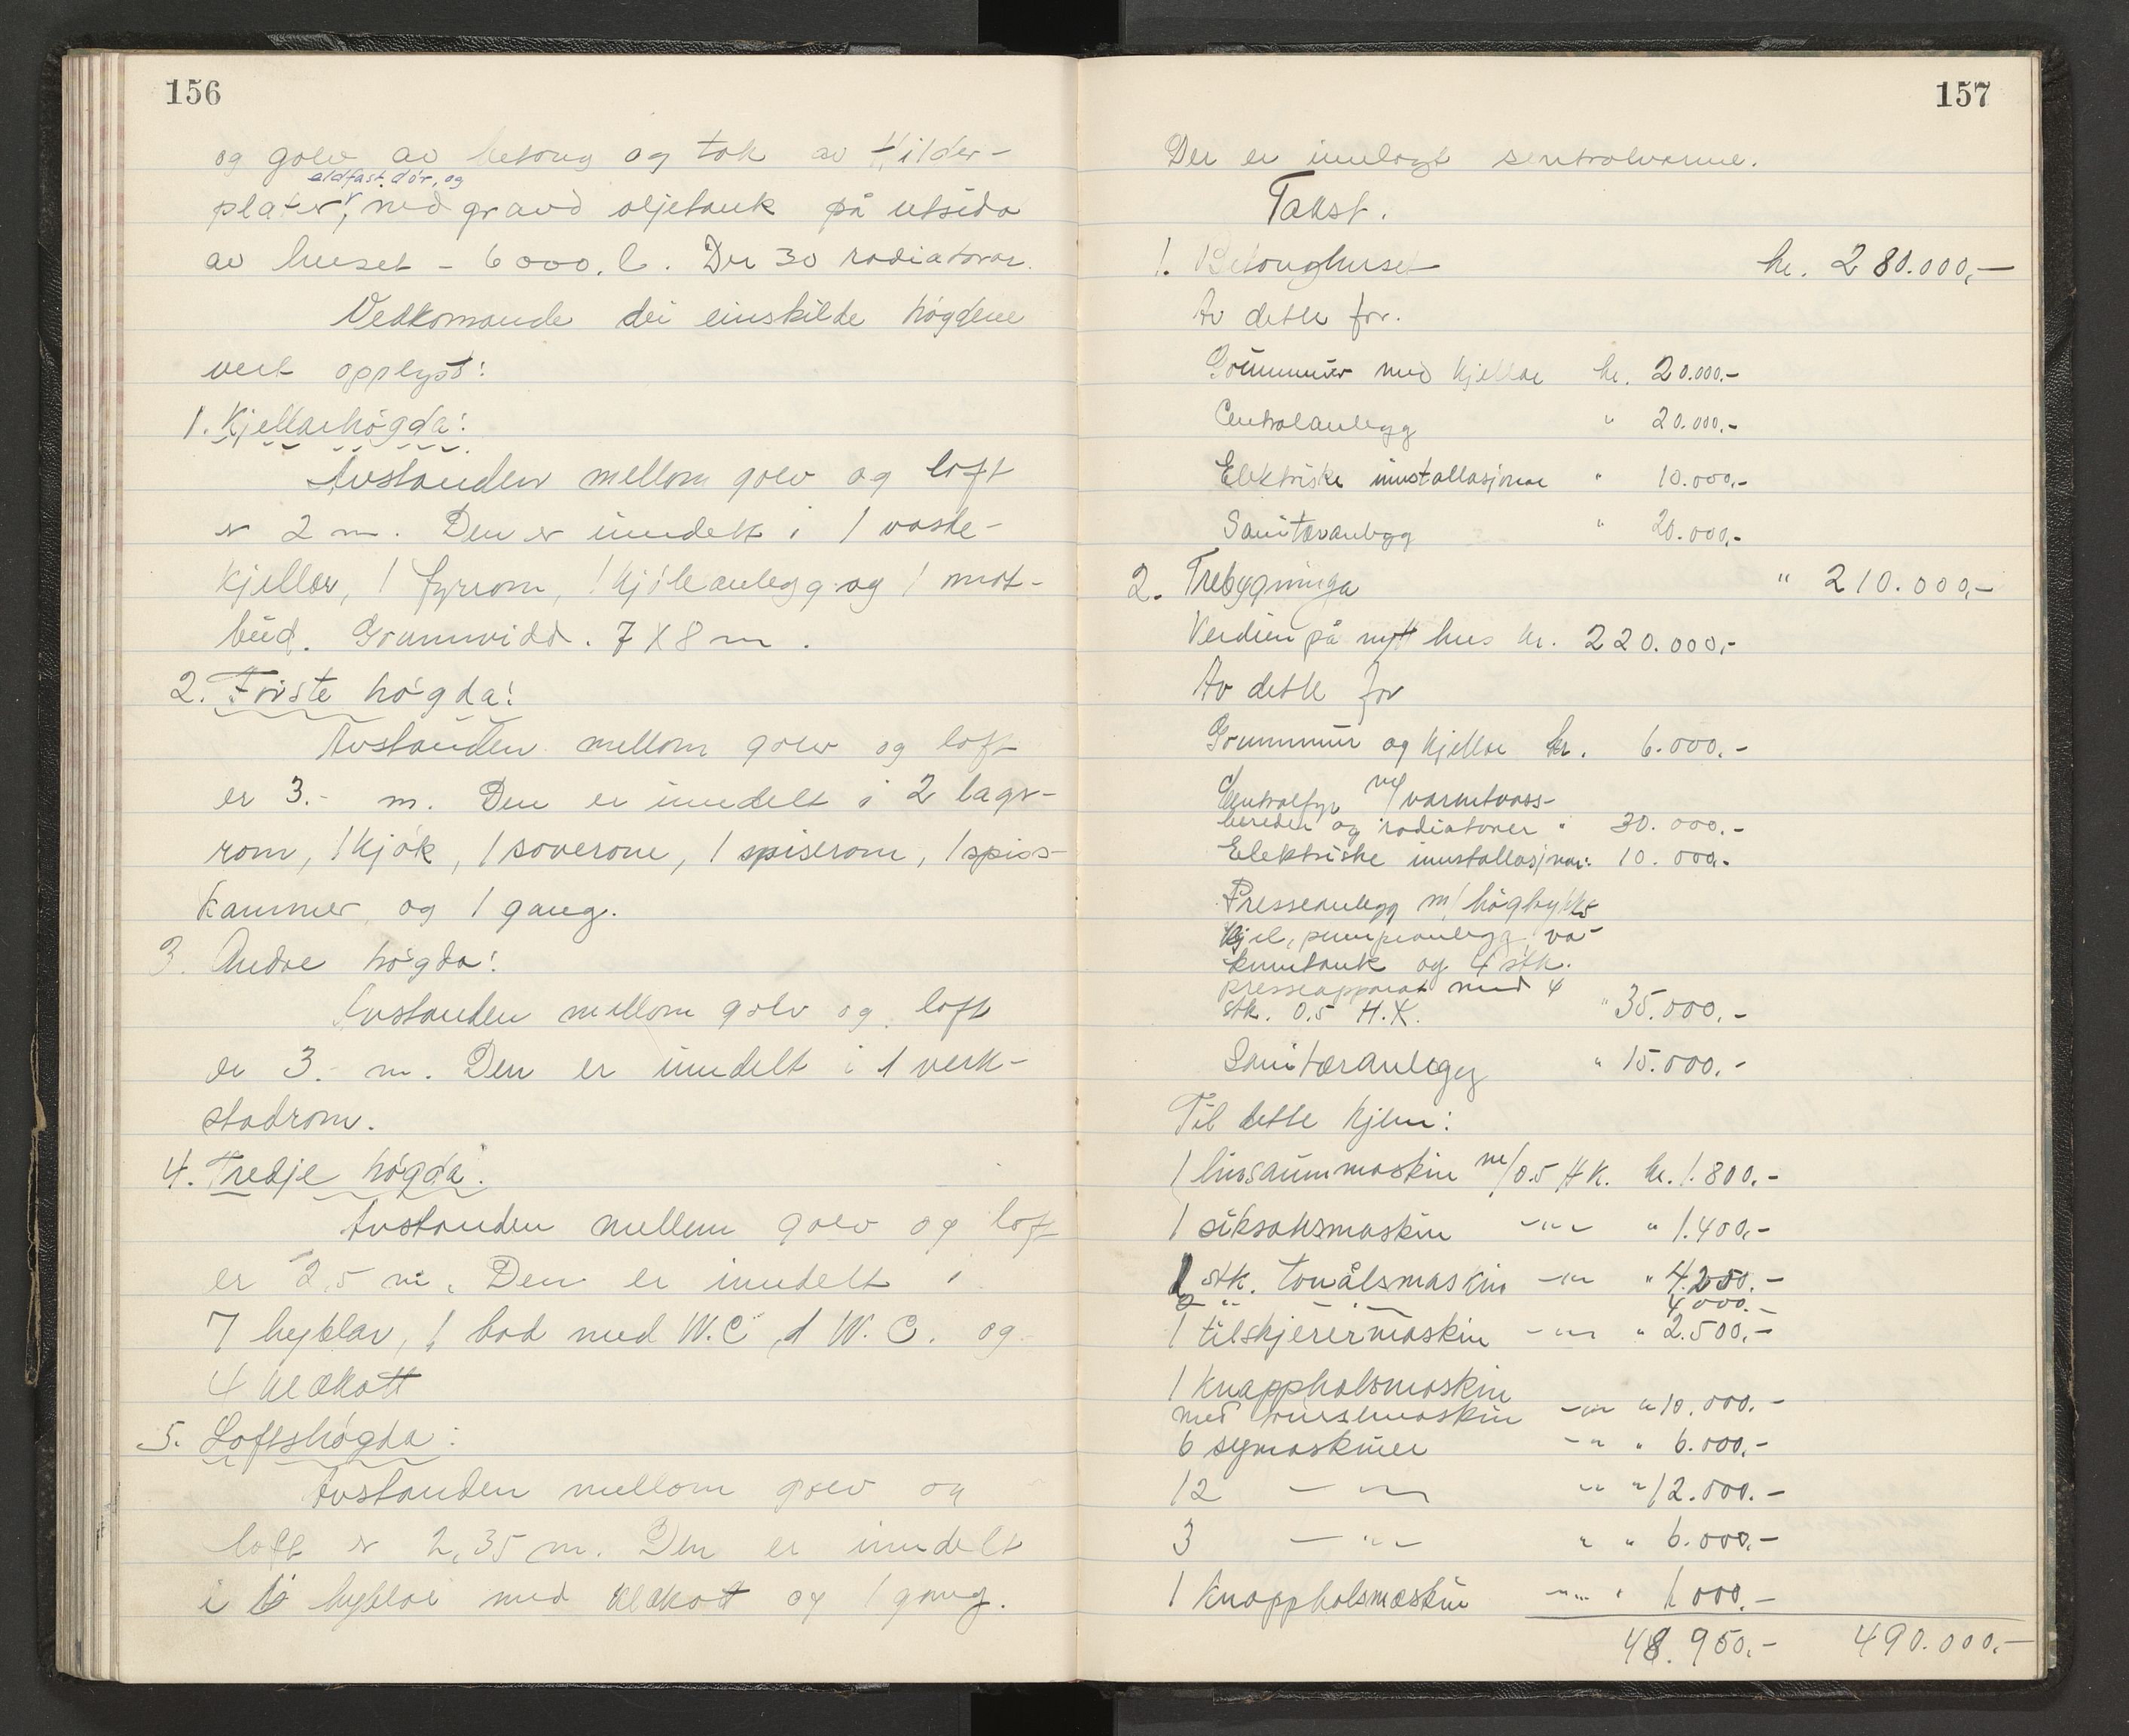 156
og golv av betong og tak av Hilder-
eldfast dør, og
plater, nedgravd oljetank på utsida
av huset - 6000. l. Der 30 radiatorar.
Vedkomande dei einskilde høgdene
vert opplyst:
1. Kjellarhøgda:
Avstanden mellom golv og loft
er 2 m. Den er inndelt i 1 vaske-
kjellar, 1 fyrrom, 1 kjøleanlegg og 1 mat-
bud. Grunnvidd. 7 X 8 m.
2. Fyrste høgda:
Avstanden mellom golv og loft
er 3.- m. Den er inndelt i 2 lagr-
rom, 1 kjøk, 1 soverom, 1 spiserom, 1 spiss-
kammer og 1 gang.
3. Andre høgda:
Avstanden mellom golv og loft
er 3.- m. Den er inndelt i 1 verk-
stadrom.
4. Tredje høgda.
Avstanden mellem golv og loft
er 2,5 m. Den er inndelt i
7 hyblar, 1 bad med W.C, 1 W.C. og
4 klækott
5. Loftshøgda:
Avstanden mellom golv og
loft er 2,35 m. Den er inndelt
i hyblar med klækott og 1 gang.
157
Der er innlagt sentralvarme.
Takst.
1. Betonghuset kr. 280.000,-
Av dette for.
Grunnmur med kjellar kr. 20.000.-
Centralanlegg " 20.000.-
Elektriske innstallasjonar " 10.000,-
Sanitæranlegg " 20.000,-
2. Trebygninga " 210.000,-
Verdien på nytt hus kr. 220.000,-
Av dette for
Grunnmur og kjellar kr. 6.000.-
Centralfyr m/varmtvass-
bereder og radiatorer " 30.000.-
Elektriske innstallasjonar: 10.000.-
Presseanlegg m/høgtrykks
kjel, pumpeanlegg, va-
kumtank og 4 stk.
presseapparat med 4
stk. 0.5 H.K. " 35.000.-
Sanitæranlegg " 15.000.-
Til dette kjem:
1 linsaummaskin m/0.5 HK. kr. 1.800.-
1 siksaksmaskin -"- " 1.400,-
1 stk. tonålsmaskin -"- " 4.250.-
2 " -"- 4.000.-
1 tilskjerermaskin -"- " 2.500,-
1 knappholsmaskin
med -"- " 10.000.-
6 symaskiner -"- " 6.000,-
12 -"- " " 12.000.-
3 -"- " " 6.000,-
1 knappholsmaskin -"- " 1.000.-
48.950,- 490.000,-